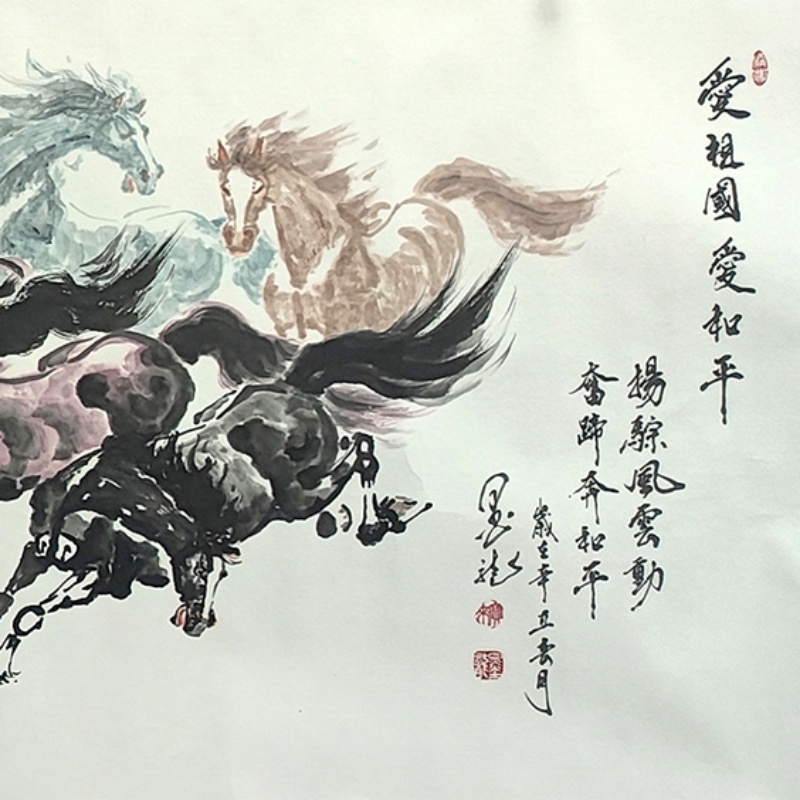 愛祖國愛和平
揚騌風雲動
奮蹄奔和平
歲在辛丑春月
墨龍